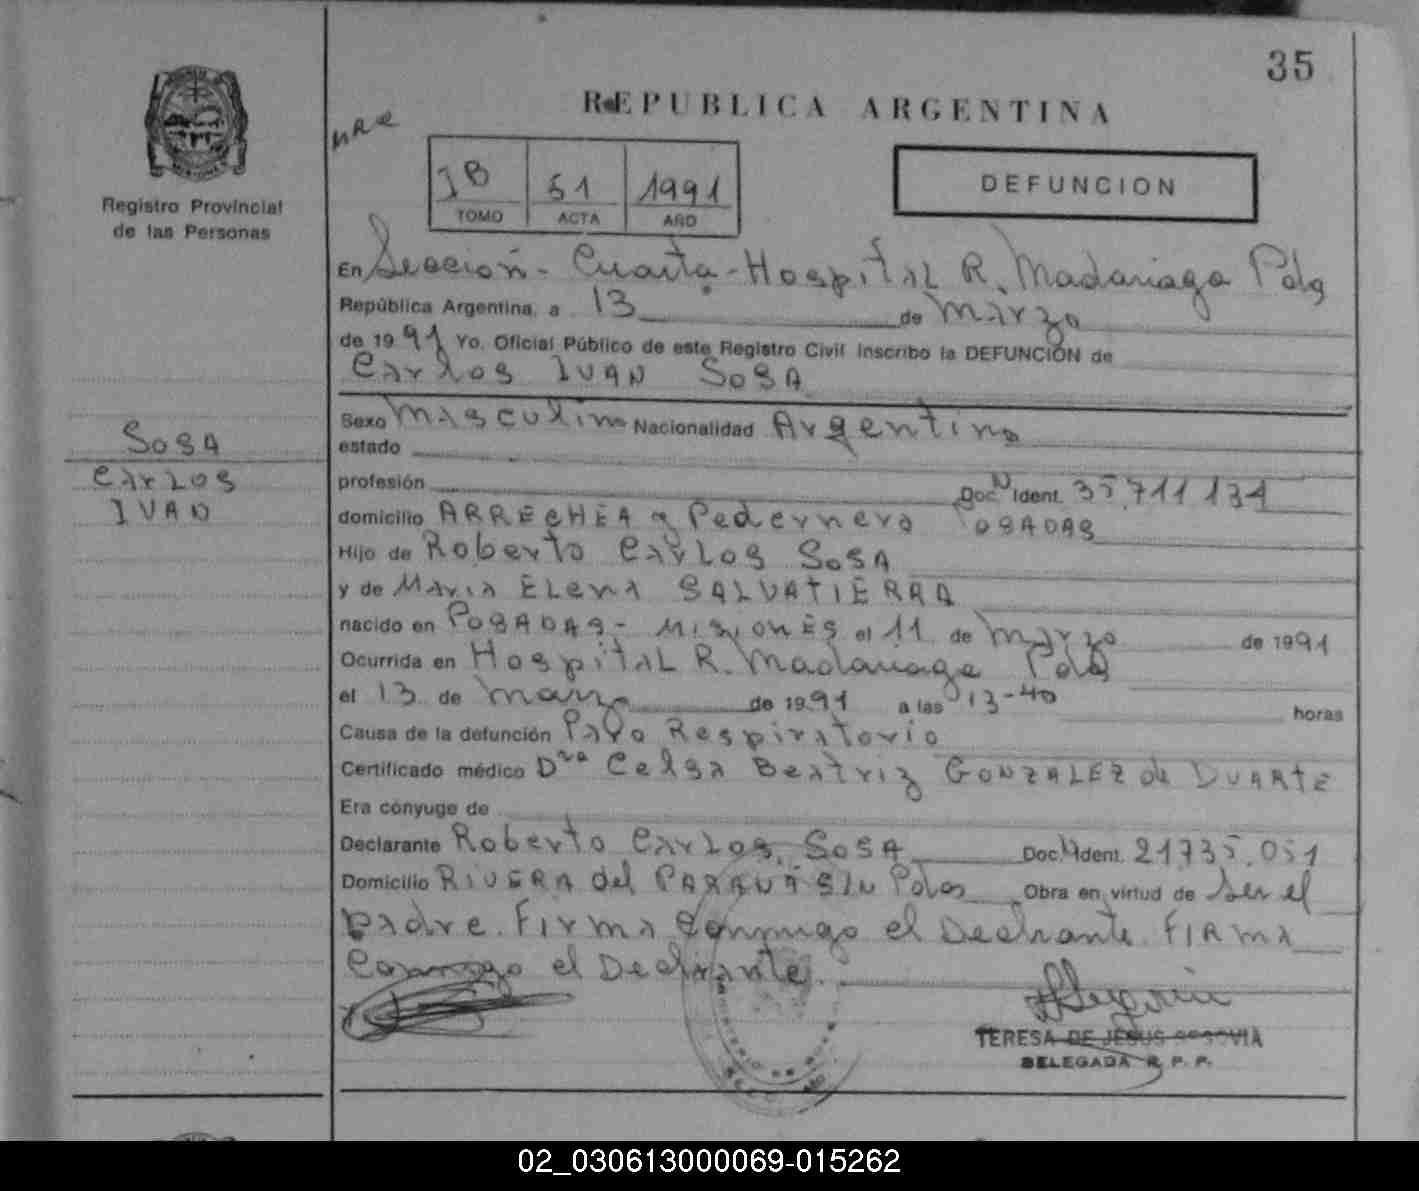 35
REPUBLICA ARGENTINA
Registro Provincial
de las Personas
1B 51 1991
TOMO ACTA AÑO
DEFUNCION
En Sección - Cuarta - Hospital R. Madariaga Pdas
República Argentina, a 13 de Marzo
de 1991 Yo, Oficial Público de este Registro Civil inscribo la DEFUNCIÓN de
Carlos IVAN SOSA
SOSA
CARLOS
IVAN
Sexo Masculino Nacionalidad Argentino
estado
profesión Doc. N Ident. 35.711.131
domicilio ARRECHEA y Pedernera POSADAS
Hijo de Roberto CARLOS SOSA
y de Maria ELENA SALVATIERRA
nacido en POSADAS - MISIONES el 11 de Marzo de 1991
Ocurrida en Hospital R. Madariaga Pdas
el 13 de Marzo de 1991 a las 13-40 horas
Causa de la defunción Paro Respiratorio
Certificado médico Dra Celsa Beatriz GONZALEZ de DUARTE
Era cónyuge de
Declarante Roberto CARLOS SOSA Doc. N Ident. 21.735.051
Domicilio RIVERA del PARANÁ S/N Pdas Obra en virtud de Ser el
Padre. Firma Conmigo el Declarante. FIRMA
Conmigo el Declarante.
TERESA DE JESUS SEGOVIA
DELEGADA R. P. P.
02_030613000069-015262